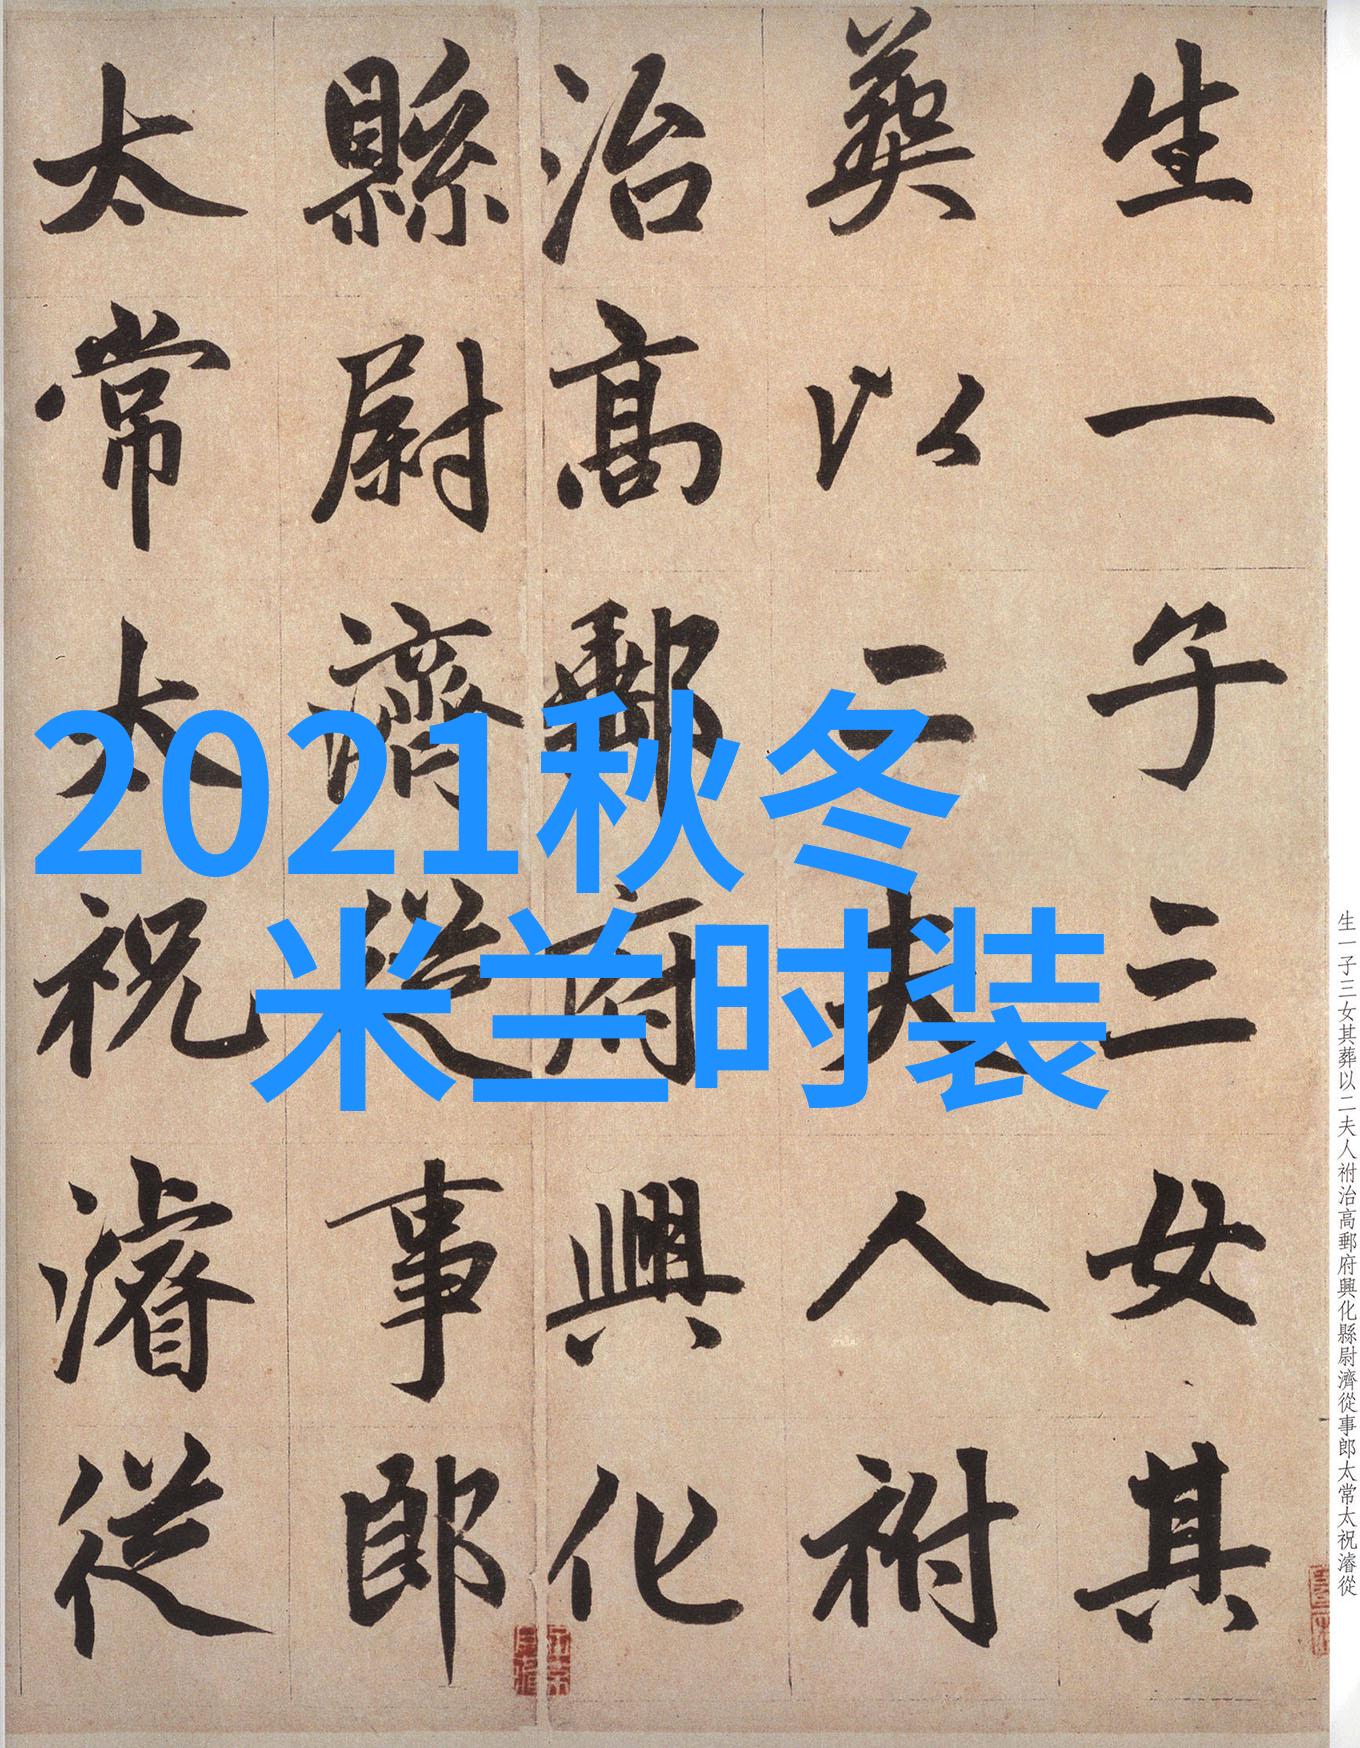 2021秋冬
米兰时装
生一子三女其
葬以二夫人祔
治高郵府興化
縣尉濟從事郎
太常太祝濬從
生一子三女其葬以二夫人祔治高郵府興化縣尉濟從事郎太常太祝濬從